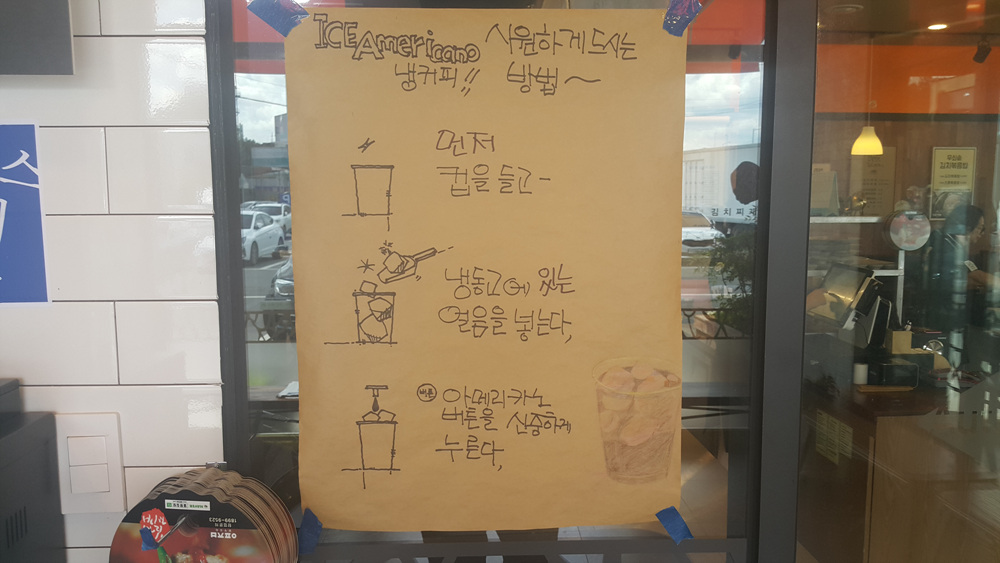 ICE Americano 시원하게 드시는
냉커피!! 방법~
먼저
컵을 들고-
냉동고에 있는
얼음을 넣는다,
버튼
아메리카노
버튼을 신중하게
누른다,
스
김치찌